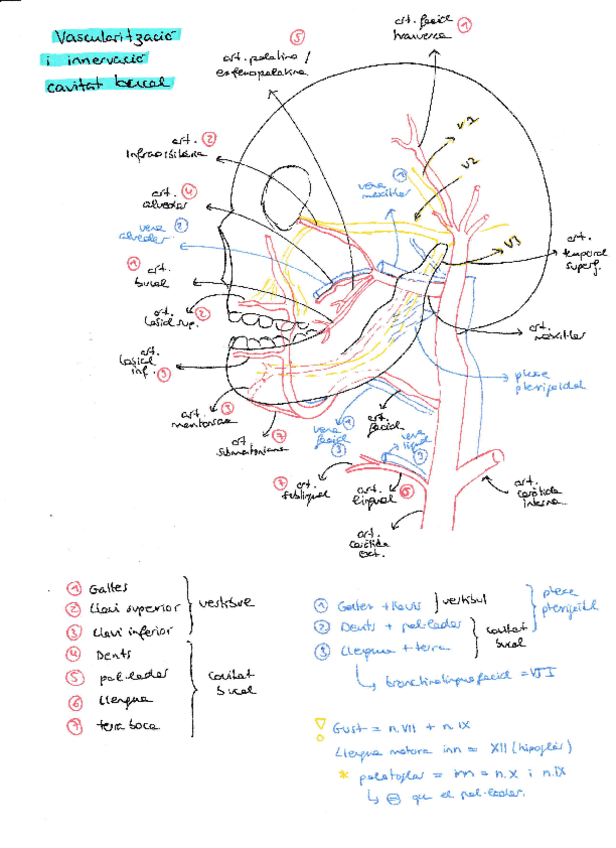 Vascularització
i innervació
cavitat bucal
art. facial
transversa
1
5
art. palatina /
esfenopalatina
art. 2
Infraorbitària
art. 4
alveolar
vena 2
alveolar
1 art.
bucal
art.
labial sup. 2
art.
labial
inf. 3
art. 3
mentoniana
art. 7
submentoniana
vena 1
maxil·lar
V2
V2
V3
art.
temporal
superf.
art.
maxil·lar
plexe
pterigoidal
vena 1
facial 3
art.
facial
vena
lingual
3
7 art.
sublingual
art.
lingual 6
art.
caròtida
interna
art.
caròtida
ext.
1 Galtes
2 Llavi superior
3 Llavi inferior
vestíbul
4 Dents
5 pal·ladar
6 Llengua
7 terra boca
cavitat
bucal
1 Galtes + llavis } vestíbul
2 Dents + pal·ladar
3 Llengua + terra
cavitat
bucal
plexe
pterigoidal
= VJI
Gust = n.VII + n.IX
Llengua motora inn = XII (hipoglòs)
* palatoglòs = inn = n.X i n.IX
que el pal·ladar.